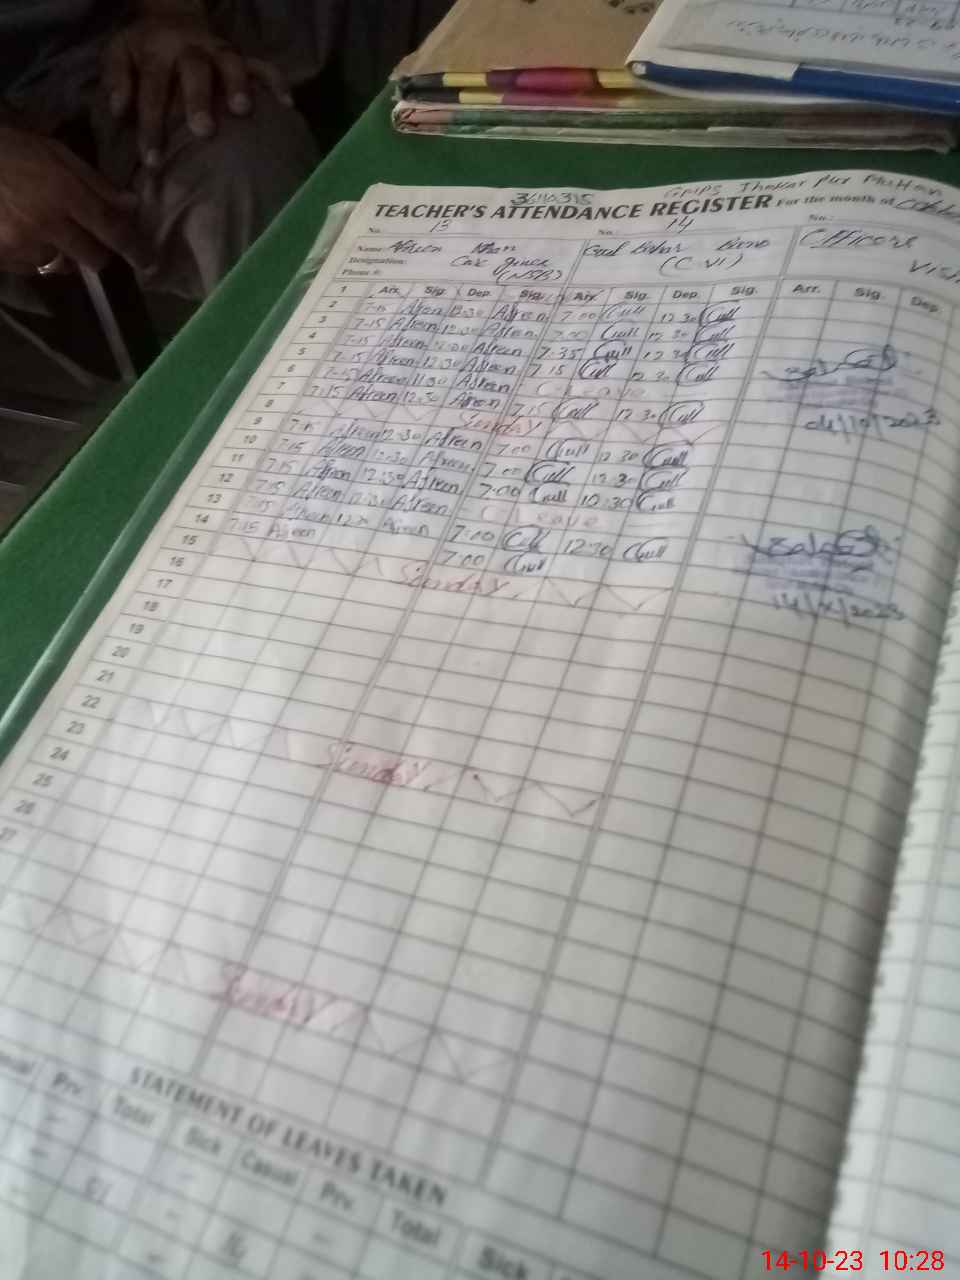 36110315
TEACHER'S ATTENDANCE REGISTER For the month of
No. 13 No. 14 No.:
Name: Afreen Khan Gul Bahar Bano Officers
Designation: (C-VI) Visit
Phone #: (NSB)
Arr. Sig. Dep. Sig. Arr. Sig. Dep. Sig. Arr. Sig. Dep.
1
2 7-15 Afreen 12:30 Afreen 7:00 Gull 12 30 Gull
3 7-15 Afreen 12:30 Afreen 7:00 Gull 12 30 Gull
4 7-15 Afreen Afreen 7:35 Gull 12 30 Gull
5 7-15 Afreen 12:30 Afreen 7 15 Gull 12 30 Gull
6 7-15 Afreen 11:30 Afreen C Leave
7 7:15 Afreen 12:30 Afreen 7 15 Gull 12 30 Gull
8 Sunday 04/10/2023
9 7-15 Afreen 12:30 Afreen 7:00 Gull 12 30 Gull
10 7:15 Afreen 12:30 Afreen 7:00 Gull 12:30 Gull
11 7:15 Afreen 12:30 Afreen 7:00 Gull 10:30 Gull
12 7:15 Afreen 12:30 Afreen C Leave
13 7:15 Afreen Afreen 7:00 Gull 12:30 Gull
14 7:15 Afreen 7:00 Gull
15 Sunday
16
17
18
19
20
21
22 Sunday
23
24
25
26
27
Sunday
STATEMENT OF LEAVES TAKEN
Prv. Total Sick Casual Prv. Total Sick
14-10-23 10:28